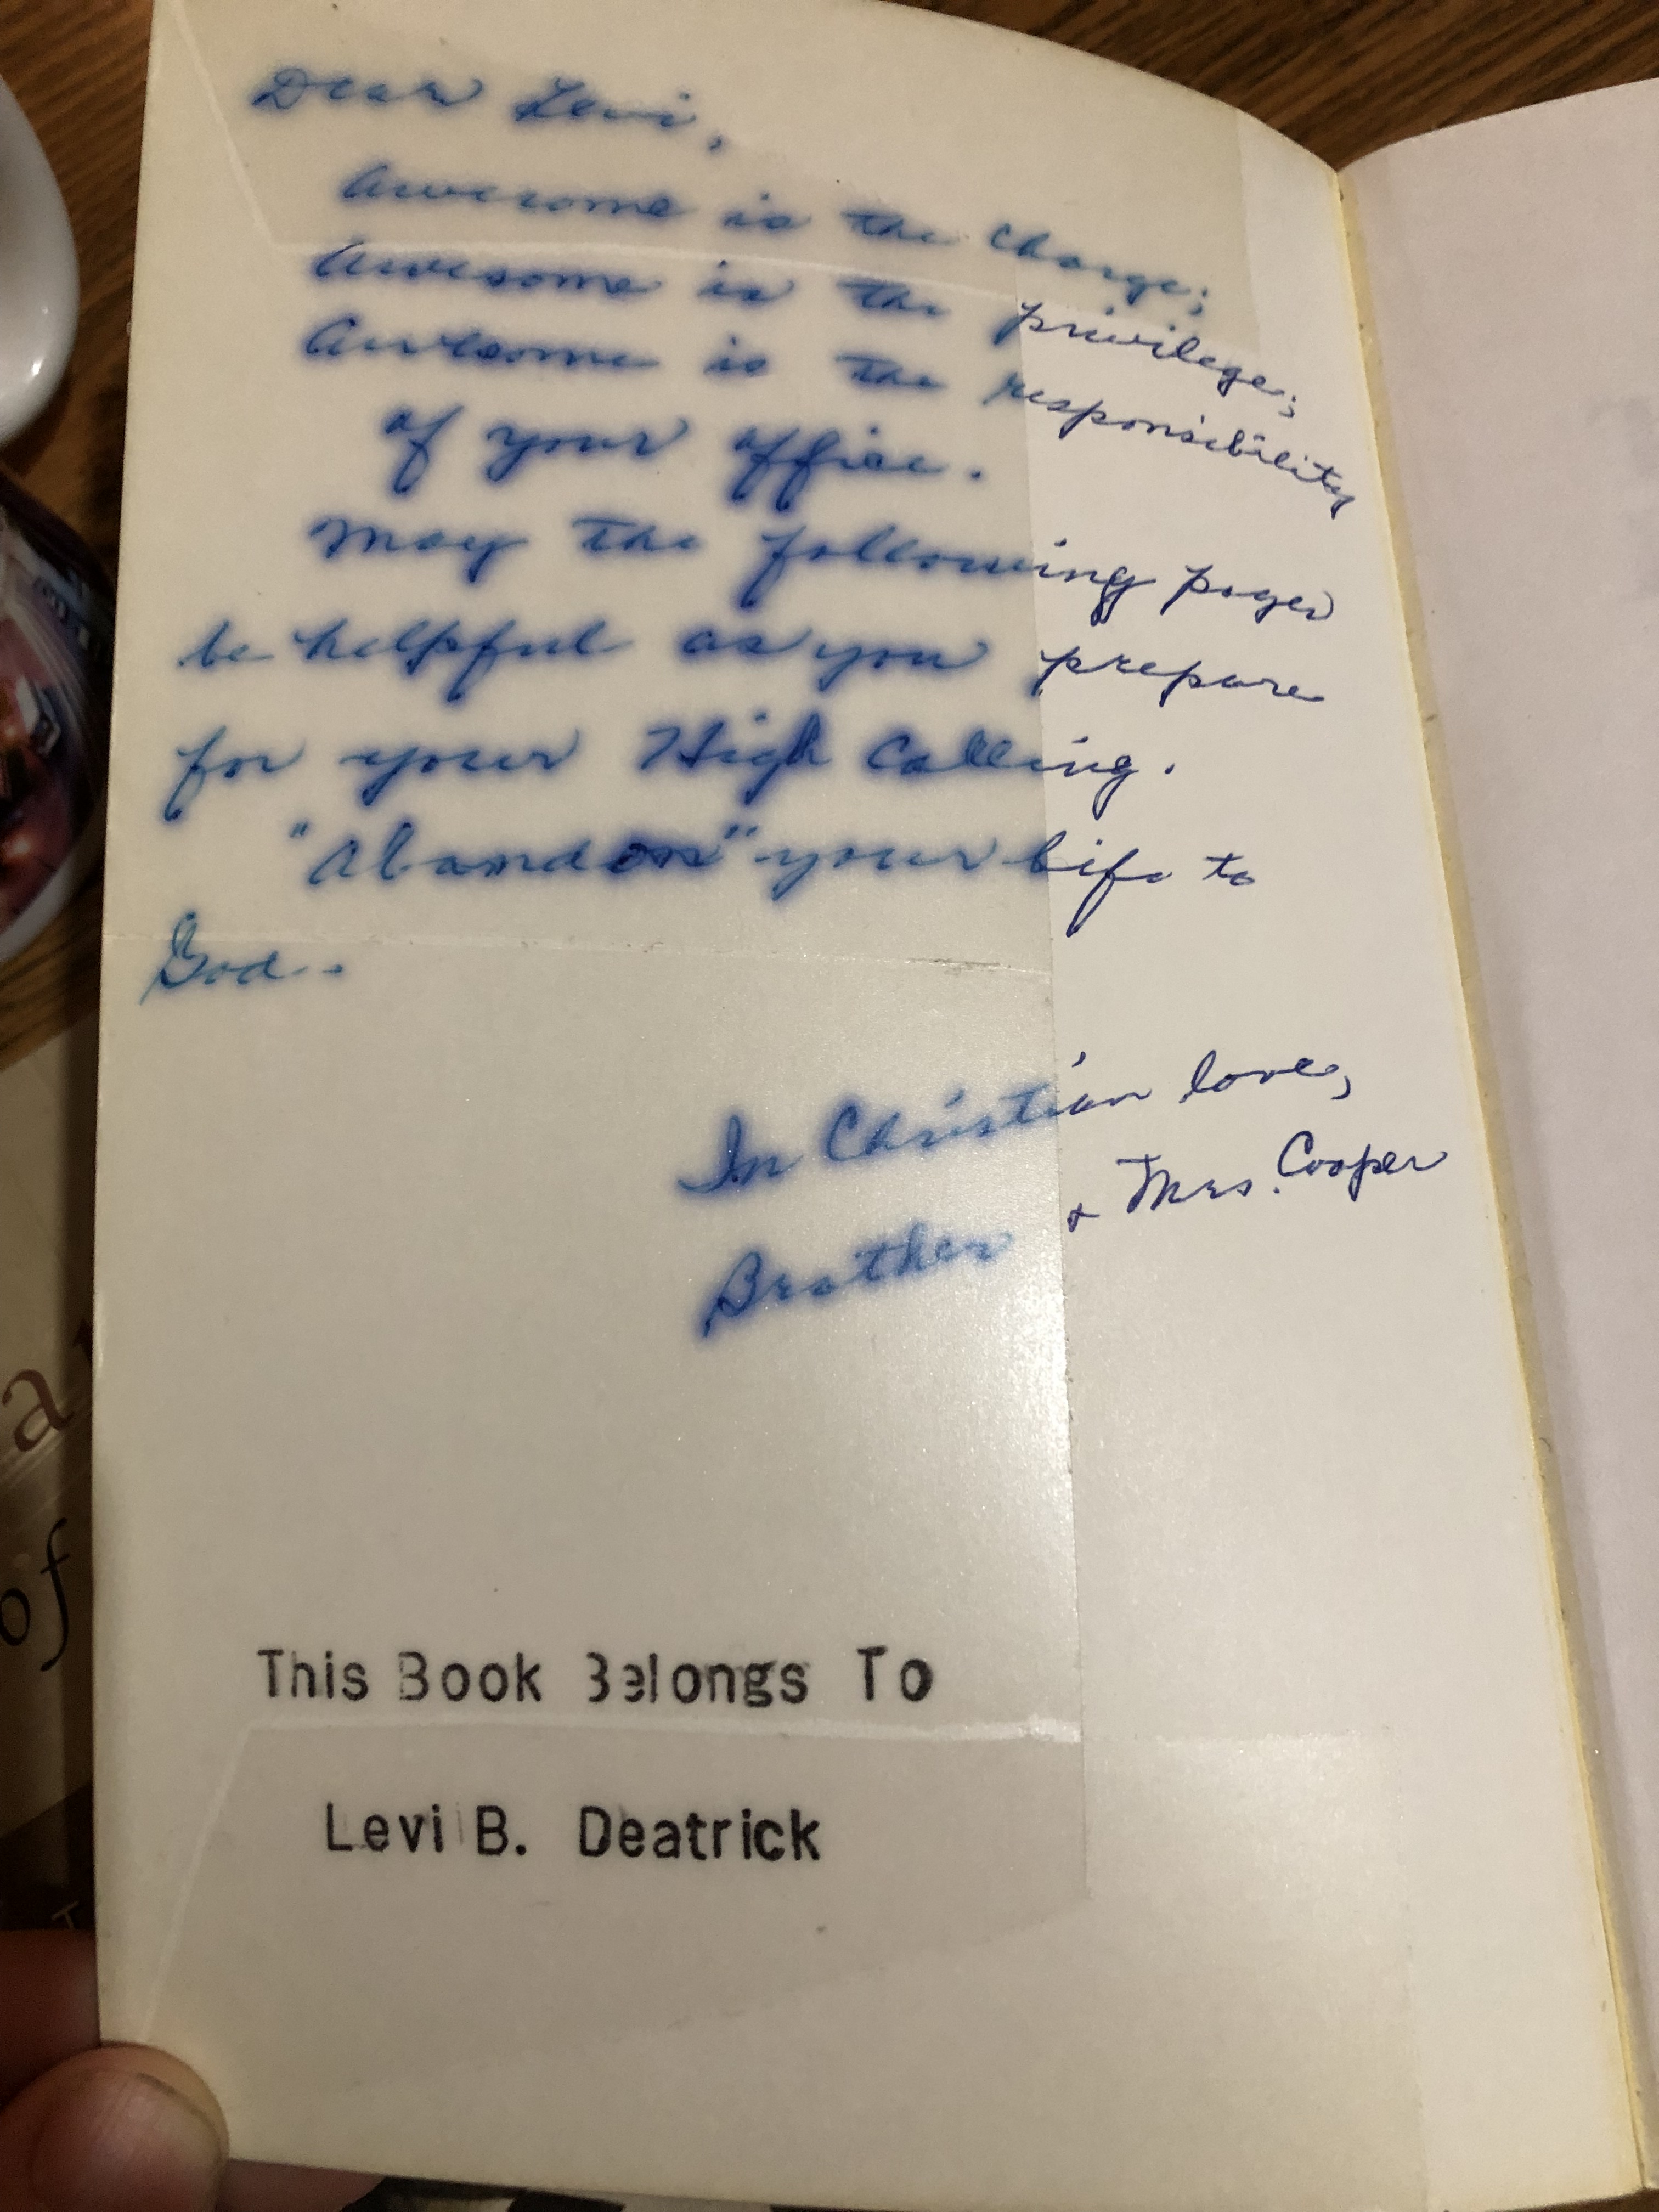 Dear Levi,
Awesome is the Charge;
Awesome is the privilege;
Awesome is the responsibility
of your office.
May the following pages
be helpful as you prepare
for your High Calling.
"Abandon" your life to
God.
In Christian love,
Brother & Mrs. Cooper
This Book Belongs To
Levi B. Deatrick
a
of